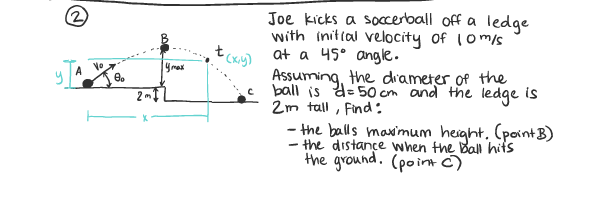 2
Joe kicks a soccerball off a ledge
with initial velocity of 10 m/s
at a 45° angle.
Assuming the diameter of the
ball is d=50 cm and the ledge is
2m tall, Find:
- the balls maximum height. (point B)
- the distance when the ball hits
the ground. (point C)
B
t
(x,y)
A
V₀
θ₀
y
ymax
2m
C
x